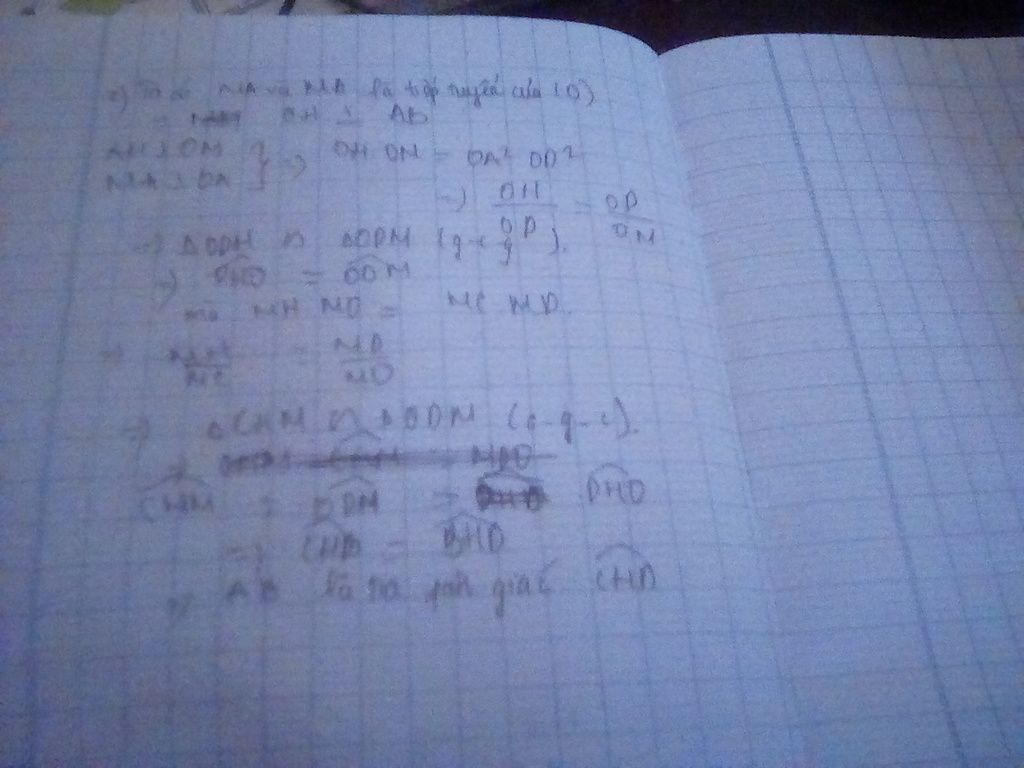 c) Ta có MA và MB là tiếp tuyến của (O)
OH ⊥ AB
AH ⊥ OM } => OH OM = OA² OD²
MA ⊥ OA
=> OH/OD = OD/OM
=> ΔODH ∽ ΔODM (g-c-g).
=> DHO = ODM
mà MH MO = MC MD.
=> MH/MC = MD/MO
=> ΔCHM ∽ ΔODM (c-g-c).
CHM = ODM = DHO
=> CHB = BHD
=> AB là tia phân giác CHD